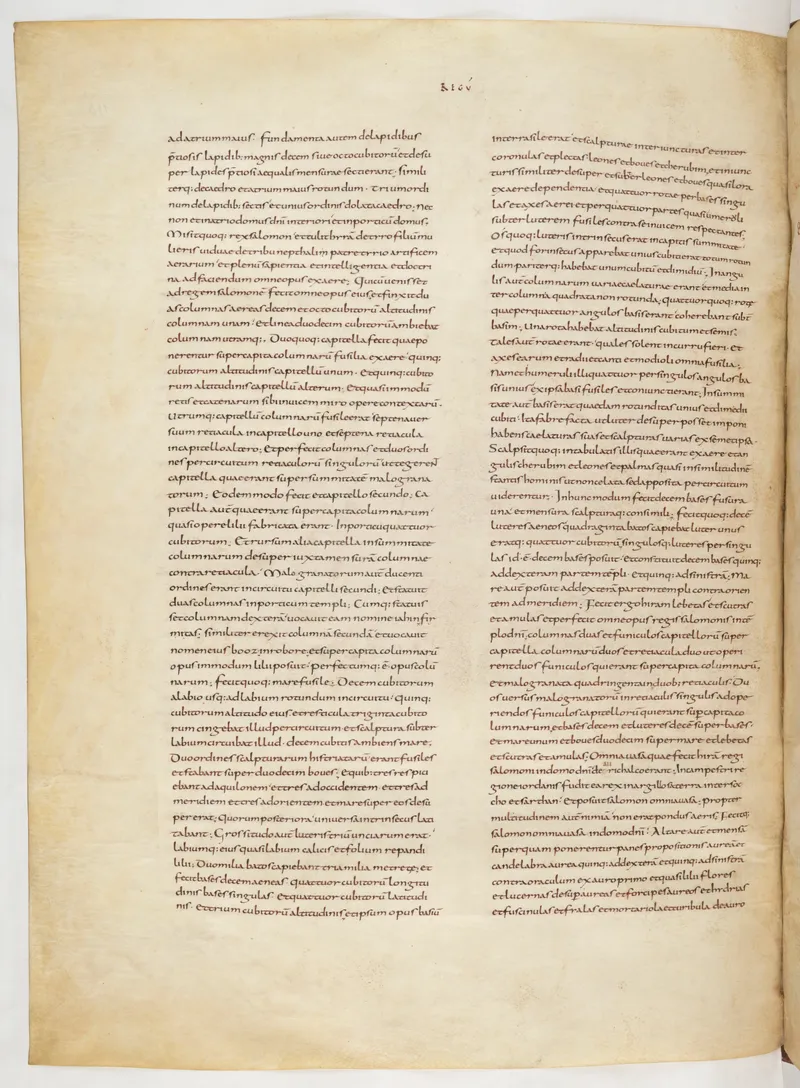 REGŪ
ad atrium maius. fundamenta autem de lapidibus
p̄tiosis lapidib; magnis decem siue octo cubitorū et desu
per lapides p̄tiosi aequalis mensurae secti erant; simili
terq; de caedro et atrium maius rotundum. Trium ordi
num de lapidib; sectis et unius ordinis dolata caedro; nec
non et in atrio domus dn̄i interiori et in porticu domus.
Misit quoq; rex salomon et tulit hirā de tyro filiū mu
lieris uiduae de tribu nepthalim patre tyrio artificem
aerarium et plenū sapientia et intelligentia et doctri
na ad faciendum omne opus ex aere; Qui cū uenisset
ad regem salomonē fecit omne opus eius et finxit du
as columnas aereas decem et octo cubitorū altitudinis
columnam unam; et linea duodecim cubitorū ambiebat
columnam utramq;. Duo quoq; capitella fecit quae po
nerentur super capita columnarū fusilia ex aere; quinq;
cubitorum altitudinis capitellū unum. et quinq; cubito
rum altitudinis capitellū alterum; et quasi in modū
retis et catenarum sibi inuicem miro opere contextarū.
Utrumq; capitellū columnarū fusile erat septena uer
suum retiacula in capitello uno et septena retiacula
in capitello altero; et perfecit columnas et duos ordi
nes per circuitum retiaculorū singulorū ut tegerent̄
capitella quae erant super summitatē malograna
torum; Eodem modo fecit et capitello secundo; Ca
pitella aut̄ quae erant super capita columnarum
quasi opere lilii fabricata erant. In porticu quattuor
cubitorum; et rursum alia capitella in summitate
columnarum desuper iuxta mensurā columnae
contra retiacula; Malogranatorum aut̄ ducenti
ordines erant in circuitu capitelli secundi; et statuit
duas columnas in porticum templi; Cumq; statuis
set columnam dexterā uocauit eam nomine iahin fir
mitas; similiter erexit columnā secundā et uocauit
nomen eius booz in robore; et super capita columnarū
opus in modum lilii posuit; perfectumq; ē opus colū
narum; fecit quoq; mare fusile; Decem cubitorum
a labio usq; ad labium rotundum in circuitu; Quinq;
cubitorum altitudo eius et resticula triginta cubito
rum cingebat illud per circuitum et scalptura subter
labium circuibat illud. decem cubitis ambiens mare;
Duo ordines scalpturarum histriatarū erant fusiles
et stabant super duodecim boues; e quib; tres respicie
bant ad aquilonem et tres ad occidentem. et tres ad
meridiem et tres ad orientem et mare super eos desu
per erat; Quorum posteriora uniuersa intrinsecus lati
tabant; Grossitudo aut̄ luteris triū unciarum erat;
labiumq; eius quasi labium calicis et folium repandi
lilii; Duo milia batos capiebant tria milia metretę; et
fecit bases decem aeneas quattuor cubitorū longitu
dinis bases singulas. et quattuor cubitorū latitudi
nis. et trium cubitorū altitudinis et ipsum opus basiū
interrasile erat et scalpturae inter iuncturas et inter
coronulas et plectas leones et boues et cherubim, et in iunc
turis similiter desuper et subter leones et boues quasi lora
ex aere dependentia et quattuor rotae per bases singu
las et axes aerei et per quattuor partes quasi umeroli
subter luterem fusiles contra se inuicem respectantes.
Os quoq; luteris intrinsecus erat in capitis summitate
et quod forinsecus apparebat unius cubiti erat totum rotun
dum pariterq; habebat unum cubitū et dimidiū; In angu
lis aut̄ columnarum uariae caelaturae erant et media in
ter columnia quadrata non rotunda; quattuor quoq; rotę
quae per quattuor angulos basis erant coherebant subt̄
basim; Una rota habebat altitudinis cubitum et semis.
tales aut̄ rotae erant quales solent in curru fieri. et
axes earum et radii et canti et modioli omnia fusilia;
Nam et humeruli illi quattuor per singulos angulos ba
sis unius ex ipsa basi fusiles et coniuncti erant; In summi
tate aut̄ basis erat quaedam rotunditas unius et dimidii
cubiti. Ita fabre facta ut luter desuper posset imponi
habens caelaturas suas et scalpturas uarias ex semet ipsa.
Scalpsit quoq; in tabulatis illis quae erant ex aere et an
gulis cherubim et leones et palmas quasi in similitudinē
stantis hominis ut non celata sed apposita per circuitum
uiderentur. In hunc modum fecit decem bases fusura
una et mensura scalpturaq; consimili; fecit quoq; decē
luteres aeneos quadraginta batos capiebat luter unus
eratq; quattuor cubitorū; singulosq; luteres per singu
las id ē decem bases posuit. et constituit decem bases quinq;
ad dexteram partem tēpli et quinq; ad sinistrā; Ma
re aut̄ posuit ad dexterā partem templi contra orien
tem ad meridiem; fecit ergo hiram lebetas et scutras
et amulas et perfecit omne opus regis salomonis in tē
plo dn̄i; columnas duas et funiculos capitellorū super
capitella columnarū duos et retiacula duo ut operi
rent duos funiculos qui erant super capita columnarū,
et malogranata quadringenta in duob; retiaculis. Du
os uersus malogranatorū in retiaculis singulis ad ope
riendos funiculos capitellorū qui erant sup capita co
lumnarum, et bases decem et luteres decē super bases.
et mare unum et boues duodecim super mare et lebetas
et scutras et amulas. Omnia uasa quae fecit hirā regi
salomoni in domo dn̄i de aurichalco erant; In campestri re
gione iordanis fudit ea rex in argillosa terra inter soc
choth et sarthan; et posuit salomon omnia uasa; propter
multitudinem aut̄ nimiā non erat pondus aeris; fecitq;
salomon omnia uasa in domo dn̄i; Altare aut̄ et mensā
super quam ponerentur panes propositionis aureā et
candelabra aurea quinq; ad dexterā et quinq; ad sinistrā
contra oraculum ex auro primo et quasi lilii flores
et lucernas desup aureas et forcipes aureos et hydrias
et fuscinulas et fialas et mortariola et turibula de auro